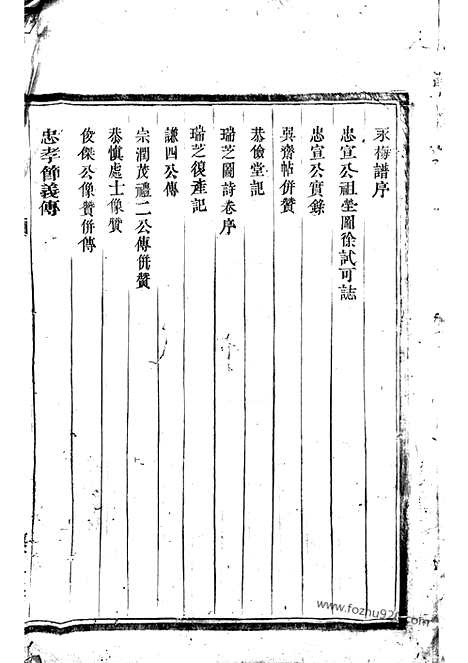 求梅譜序
忠宣公祖塋圖徐試可誌
忠宣公實錄
巽齋帖併贊
恭儉堂記
瑞芝圖詩卷序
瑞芝復產記
謙四公傳
宗潤茂禮二公傳併贊
恭慎處士像贊
俊傑公像贊併傳
忠孝節義傳
www.fozhu920.com